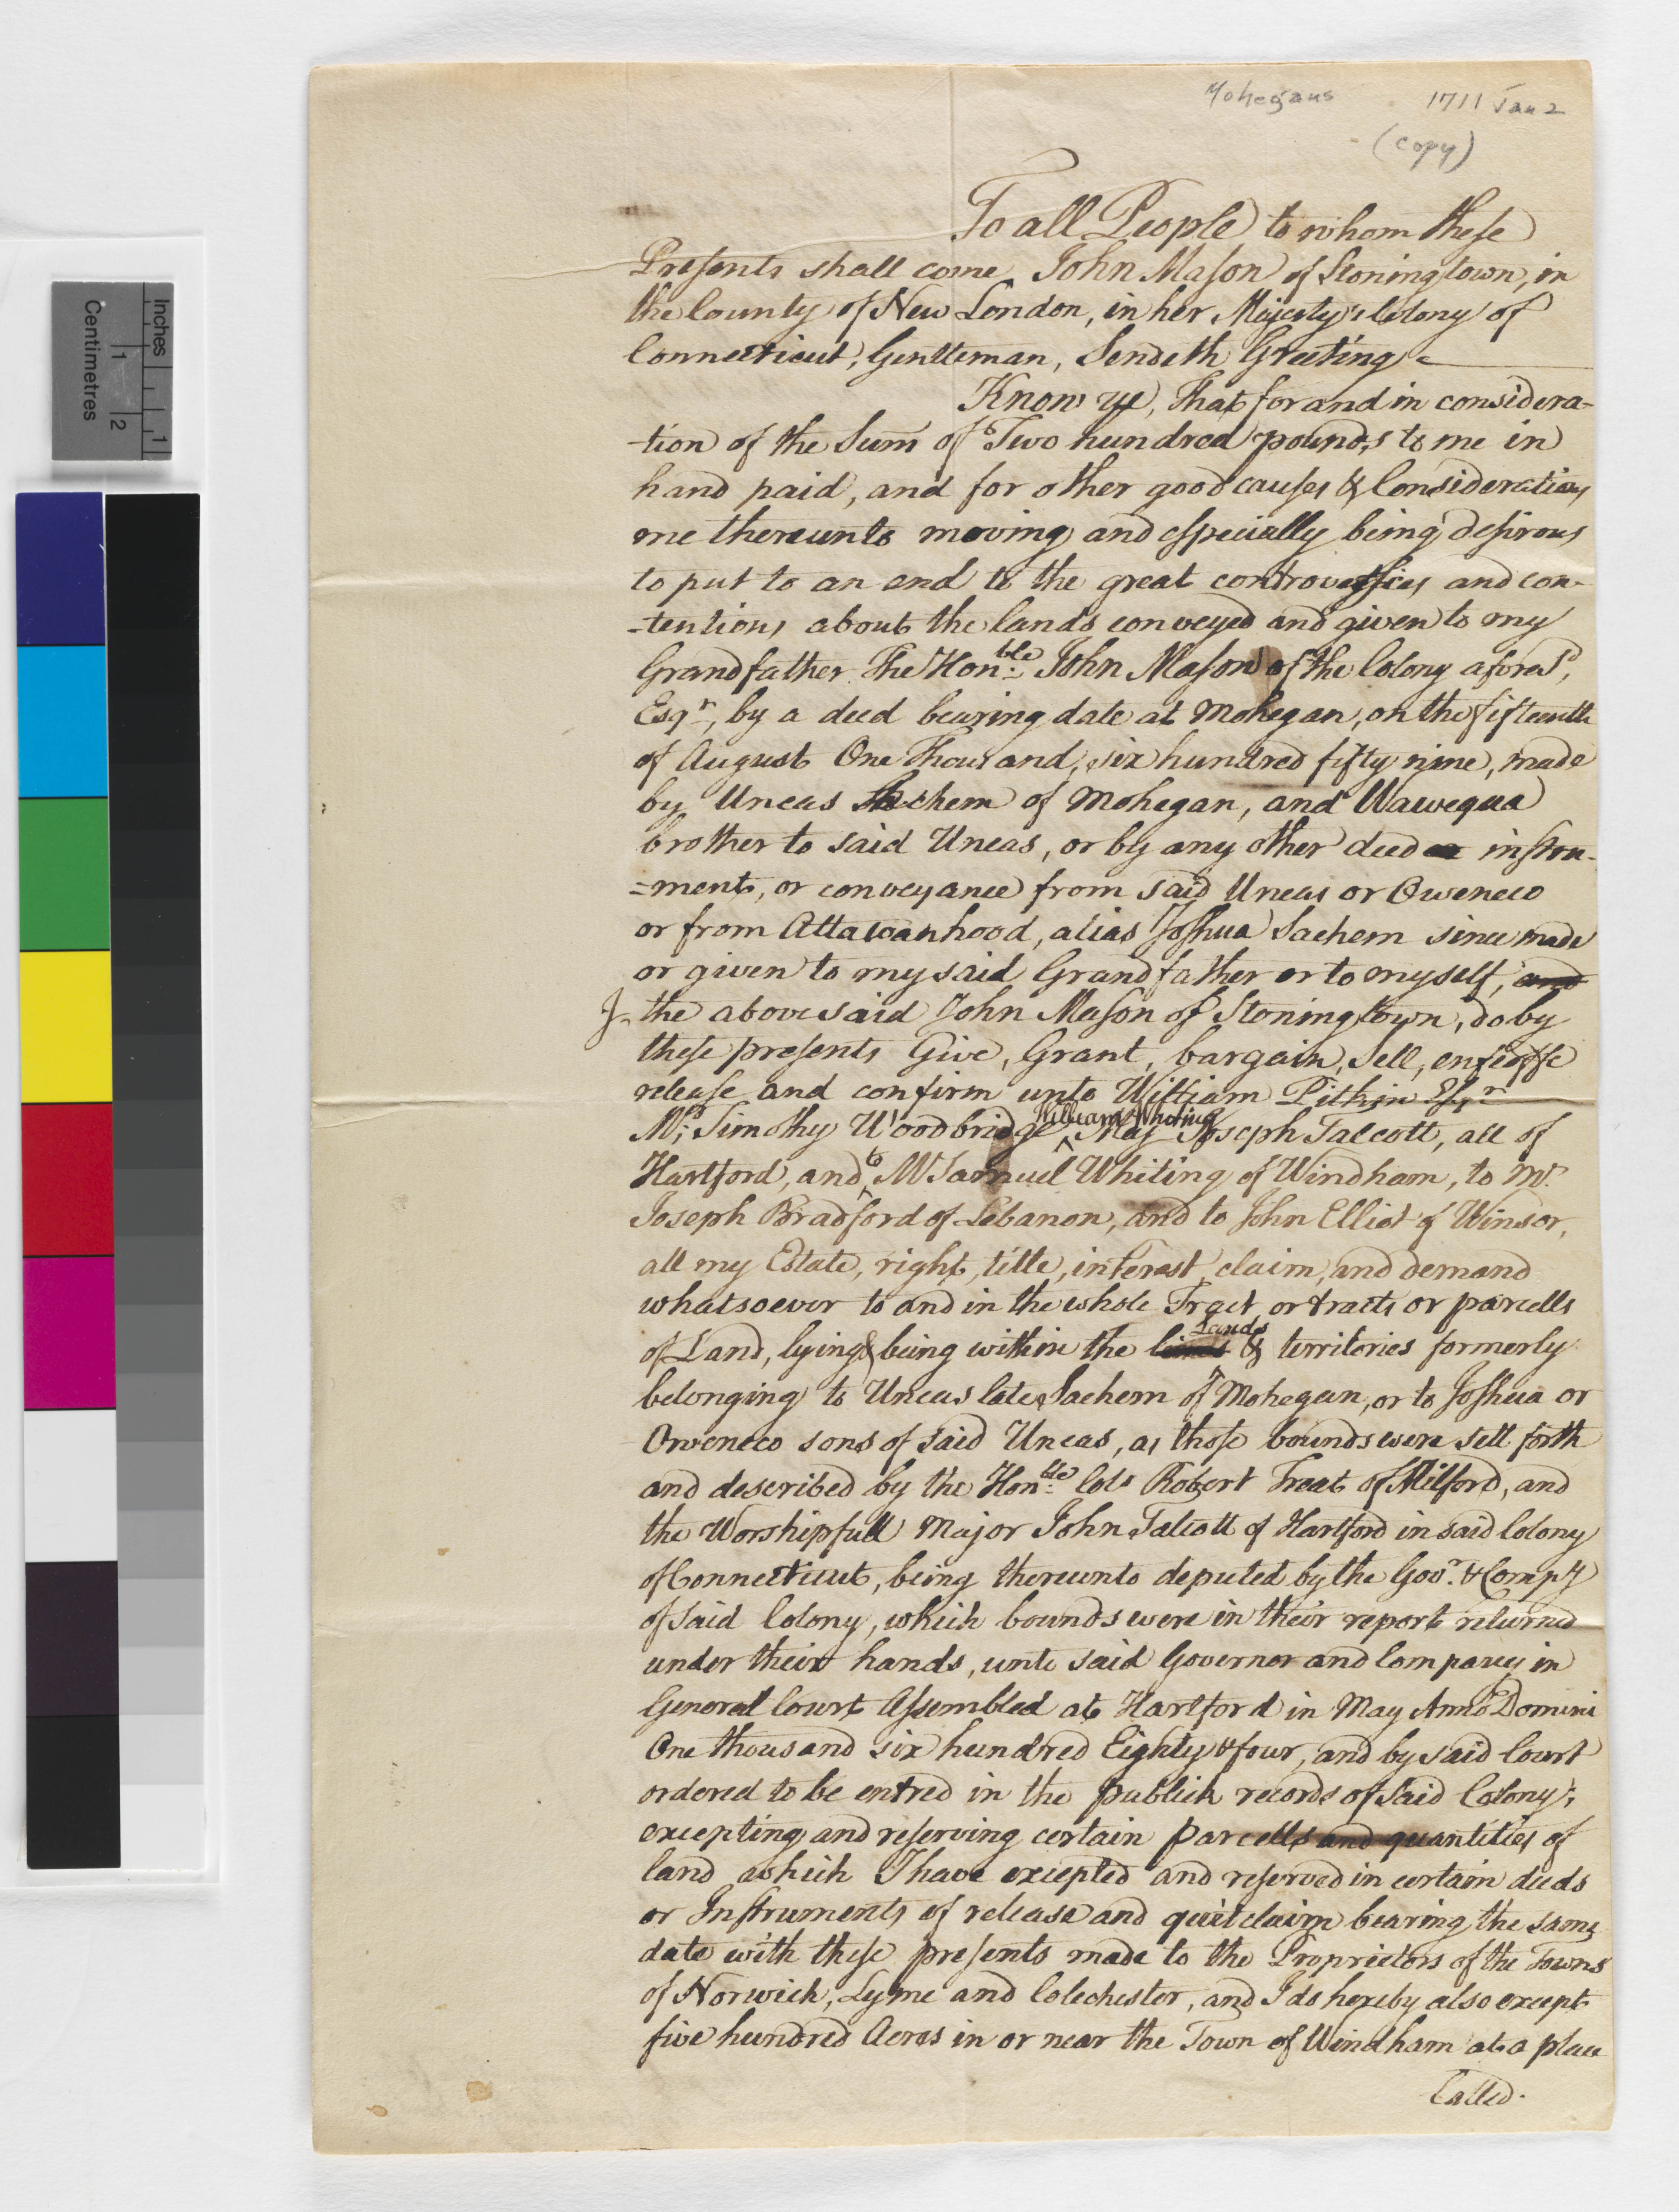 Mohegans 1711 Jan 2
(copy)
To all People to whom these
Presents shall come, John Mason of Stoningtown, in
the County of New London, in her Majesty's Colony of
Connecticut, Gentleman, Sendeth Greeting.
Know ye, That for and in considera-
-tion of the Sum of Two hundred pounds to me in
hand paid, and for other good causes & Considerations
me thereunto moving and especially being desirous
to put to an end to the great controversies and con-
-tentions about the lands conveyed and given to my
Grandfather The Honble John Mason of the Colony aforesd,
Esqr, by a deed bearing date at Mohegan, on the fifteenth
of August One Thousand, six hundred fifty nine, made
by Uncas Sachem of Mohegan, and Wawequa
brother to said Uncas, or by any other deed or instru-
=ment, or conveyance from said Uncas or Oweneco
or from Attawanhood, alias Joshua Sachem since made
or given to my said Grandfather or to myself, and
I the abovesaid John Mason of Stoningtown, do by
these presents Give, Grant, bargain, Sell, enfeoffe
release and confirm unto William Pitkin Esqr
Mr. Simothy Woodbridge William Whiting Maj Joseph Talcott, all of
Hartford, and to Mr Samuel Whiting of Windham, to Mr
Joseph Bradford of Lebanon, and to John Elliot of Winsor,
all my Estate, right, title, interest, claim, and demand
whatsoever to and in the whole Tract or tracts or parcells
of Land, lying & being within the Lands & territories formerly
belonging to Uncas late Sachem of Mohegan, or to Joshua or
Oweneco sons of said Uncas, as those bounds were sett forth
and described by the Honble Colo Robert Treat of Milford, and
the Worshipfull Major John Talcott of Hartford in said Colony
of Connecticut, being thereunto deputed by the Govr. & Compy
of said Colony, which bounds were in their report returned
under their hands, unto said Governor and Company in
General Court Assembled at Hartford in May Anno Domini
One thousand six hundred Eighty & four, and by said Court
ordered to be entred in the publick records of said Colony;
excepting and reserving certain parcells and quantities of
land which I have excepted and reserved in certain deeds
or Instruments of release and quitclaim bearing the same
date with these presents made to the Proprietors of the Towns
of Norwich, Lyme and Colechester, and I do hereby also except
five hundred Acres in or near the Town of Windham at a place
Called.
Inches
1
Centimetres
1
2